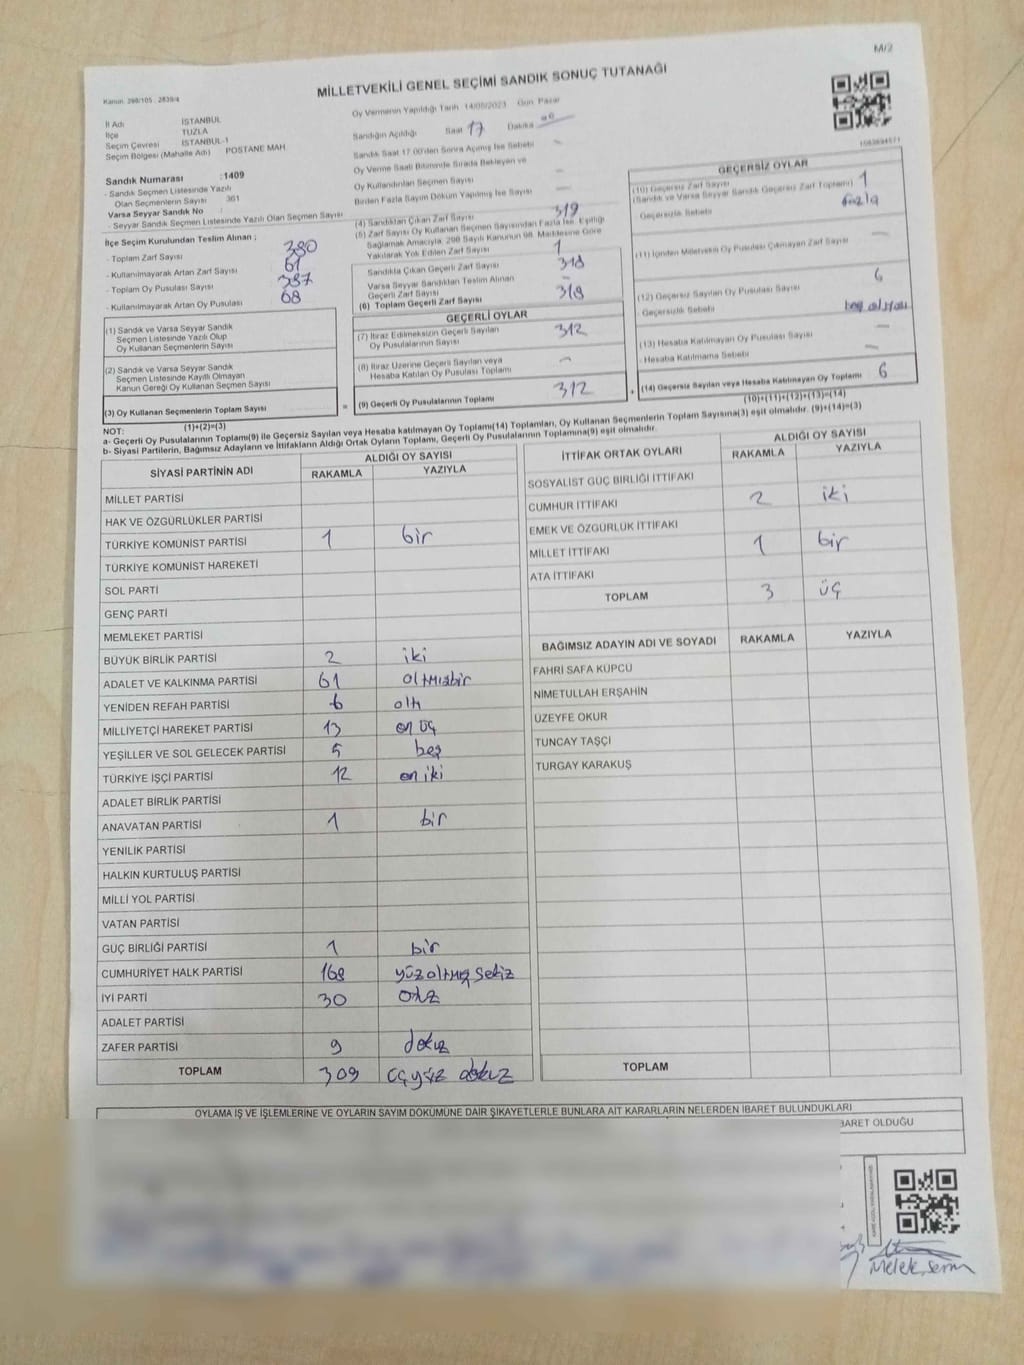 M/2
MİLLETVEKİLİ GENEL SEÇİMİ SANDIK SONUÇ TUTANAĞI
Kanun: 298/105 , 2839/4
İl Adı İSTANBUL
İlçe TUZLA
Seçim Çevresi İSTANBUL-1
Seçim Bölgesi (Mahalle Adı) POSTANE MAH
Oy Vermenin Yapıldığı Tarih 14/05/2023 Gün Pazar
Sandığın Açıldığı Saat 17 Dakika
Sandık Saat 17:00'den Sonra Açılmış İse Sebebi
Oy Verme Saati Bitiminde Sırada Bekleyen ve
Oy Kullandırılan Seçmen Sayısı
Birden Fazla Sayım Döküm Yapılmış İse Sayısı
Sandık Numarası :1409
- Sandık Seçmen Listesinde Yazılı
Olan Seçmenlerin Sayısı 361
Varsa Seyyar Sandık No :
- Seyyar Sandık Seçmen Listesinde Yazılı Olan Seçmen Sayısı
İlçe Seçim Kurulundan Teslim Alınan ;
- Toplam Zarf Sayısı 380
- Kullanılmayarak Artan Zarf Sayısı 61
- Toplam Oy Pusulası Sayısı 387
- Kullanılmayarak Artan Oy Pusulası 68
(1) Sandık ve Varsa Seyyar Sandık
Seçmen Listesinde Yazılı Olup
Oy Kullanan Seçmenlerin Sayısı
(2) Sandık ve Varsa Seyyar Sandık
Seçmen Listesinde Kayıtlı Olmayan
Kanun Gereği Oy Kullanan Seçmen Sayısı
(3) Oy Kullanan Seçmenlerin Toplam Sayısı
(1)+(2)=(3)
(4) Sandıktan Çıkan Zarf Sayısı 319
(5) Zarf Sayısı Oy Kullanan Seçmen Sayısından Fazla İse, Eşitliği
Sağlamak Amacıyla, 298 Sayılı Kanunun 98. Maddesine Göre
Yakılarak Yok Edilen Zarf Sayısı 1
Sandıkta Çıkan Geçerli Zarf Sayısı 318
Varsa Seyyar Sandıktan Teslim Alınan
Geçerli Zarf Sayısı
(6) Toplam Geçerli Zarf Sayısı 318
GEÇERLİ OYLAR
(7) İtiraz Edilmeksizin Geçerli Sayılan
Oy Pusulalarının Sayısı 312
(8) İtiraz Üzerine Geçerli Sayılan veya
Hesaba Katılan Oy Pusulası Toplamı
= (9) Geçerli Oy Pusulalarının Toplamı 312
GEÇERSİZ OYLAR
(10) Geçersiz Zarf Sayısı
(Sandık ve Varsa Seyyar Sandık Geçersiz Zarf Toplamı) 1
Geçersizlik Sebebi fazla
(11) İçinden Milletvekili Oy Pusulası Çıkmayan Zarf Sayısı
(12) Geçersiz Sayılan Oy Pusulası Sayısı 6
- Geçersizlik Sebebi
(13) Hesaba Katılmayan Oy Pusulası Sayısı
- Hesaba Katılmama Sebebi
+ (14) Geçersiz Sayılan veya Hesaba Katılmayan Oy Toplamı 6
(10)+(11)+(12)+(13)=(14)
NOT:
a- Geçerli Oy Pusulalarının Toplamı(9) ile Geçersiz Sayılan veya Hesaba katılmayan Oy Toplamı(14) Toplamları, Oy Kullanan Seçmenlerin Toplam Sayısına(3) eşit olmalıdır. (9)+(14)=(3)
b- Siyasi Partilerin, Bağımsız Adayların ve İttifakların Aldığı Ortak Oyların Toplamı, Geçerli Oy Pusulalarının Toplamına(9) eşit olmalıdır.
SİYASİ PARTİNİN ADI ALDIĞI OY SAYISI
RAKAMLA YAZIYLA
MİLLET PARTİSİ
HAK VE ÖZGÜRLÜKLER PARTİSİ
TÜRKİYE KOMÜNİST PARTİSİ 1 bir
TÜRKİYE KOMÜNİST HAREKETİ
SOL PARTİ
GENÇ PARTİ
MEMLEKET PARTİSİ
BÜYÜK BİRLİK PARTİSİ 2 iki
ADALET VE KALKINMA PARTİSİ 61 altmışbir
YENİDEN REFAH PARTİSİ 6 altı
MİLLİYETÇİ HAREKET PARTİSİ 13 on üç
YEŞİLLER VE SOL GELECEK PARTİSİ 5 beş
TÜRKİYE İŞÇİ PARTİSİ 12 on iki
ADALET BİRLİK PARTİSİ
ANAVATAN PARTİSİ 1 bir
YENİLİK PARTİSİ
HALKIN KURTULUŞ PARTİSİ
MİLLİ YOL PARTİSİ
VATAN PARTİSİ
GÜÇ BİRLİĞİ PARTİSİ 1 bir
CUMHURİYET HALK PARTİSİ 168 yüzaltmış sekiz
İYİ PARTİ 30 otuz
ADALET PARTİSİ
ZAFER PARTİSİ 9 dokuz
TOPLAM 309 üçyüz dokuz
İTTİFAK ORTAK OYLARI ALDIĞI OY SAYISI
RAKAMLA YAZIYLA
SOSYALİST GÜÇ BİRLİĞİ İTTİFAKI
CUMHUR İTTİFAKI 2 iki
EMEK VE ÖZGÜRLÜK İTTİFAKI
MİLLET İTTİFAKI 1 bir
ATA İTTİFAKI
TOPLAM 3 üç
BAĞIMSIZ ADAYIN ADI VE SOYADI RAKAMLA YAZIYLA
FAHRİ SAFA KÜPCÜ
NİMETULLAH ERŞAHİN
ÜZEYFE OKUR
TUNCAY TAŞÇİ
TURGAY KARAKUŞ
TOPLAM
OYLAMA İŞ VE İŞLEMLERİNE VE OYLARIN SAYIM DÖKÜMÜNE DAİR ŞİKAYETLERLE BUNLARA AİT KARARLARIN NELERDEN İBARET BULUNDUKLARI
BARET OLDUĞU
Melek